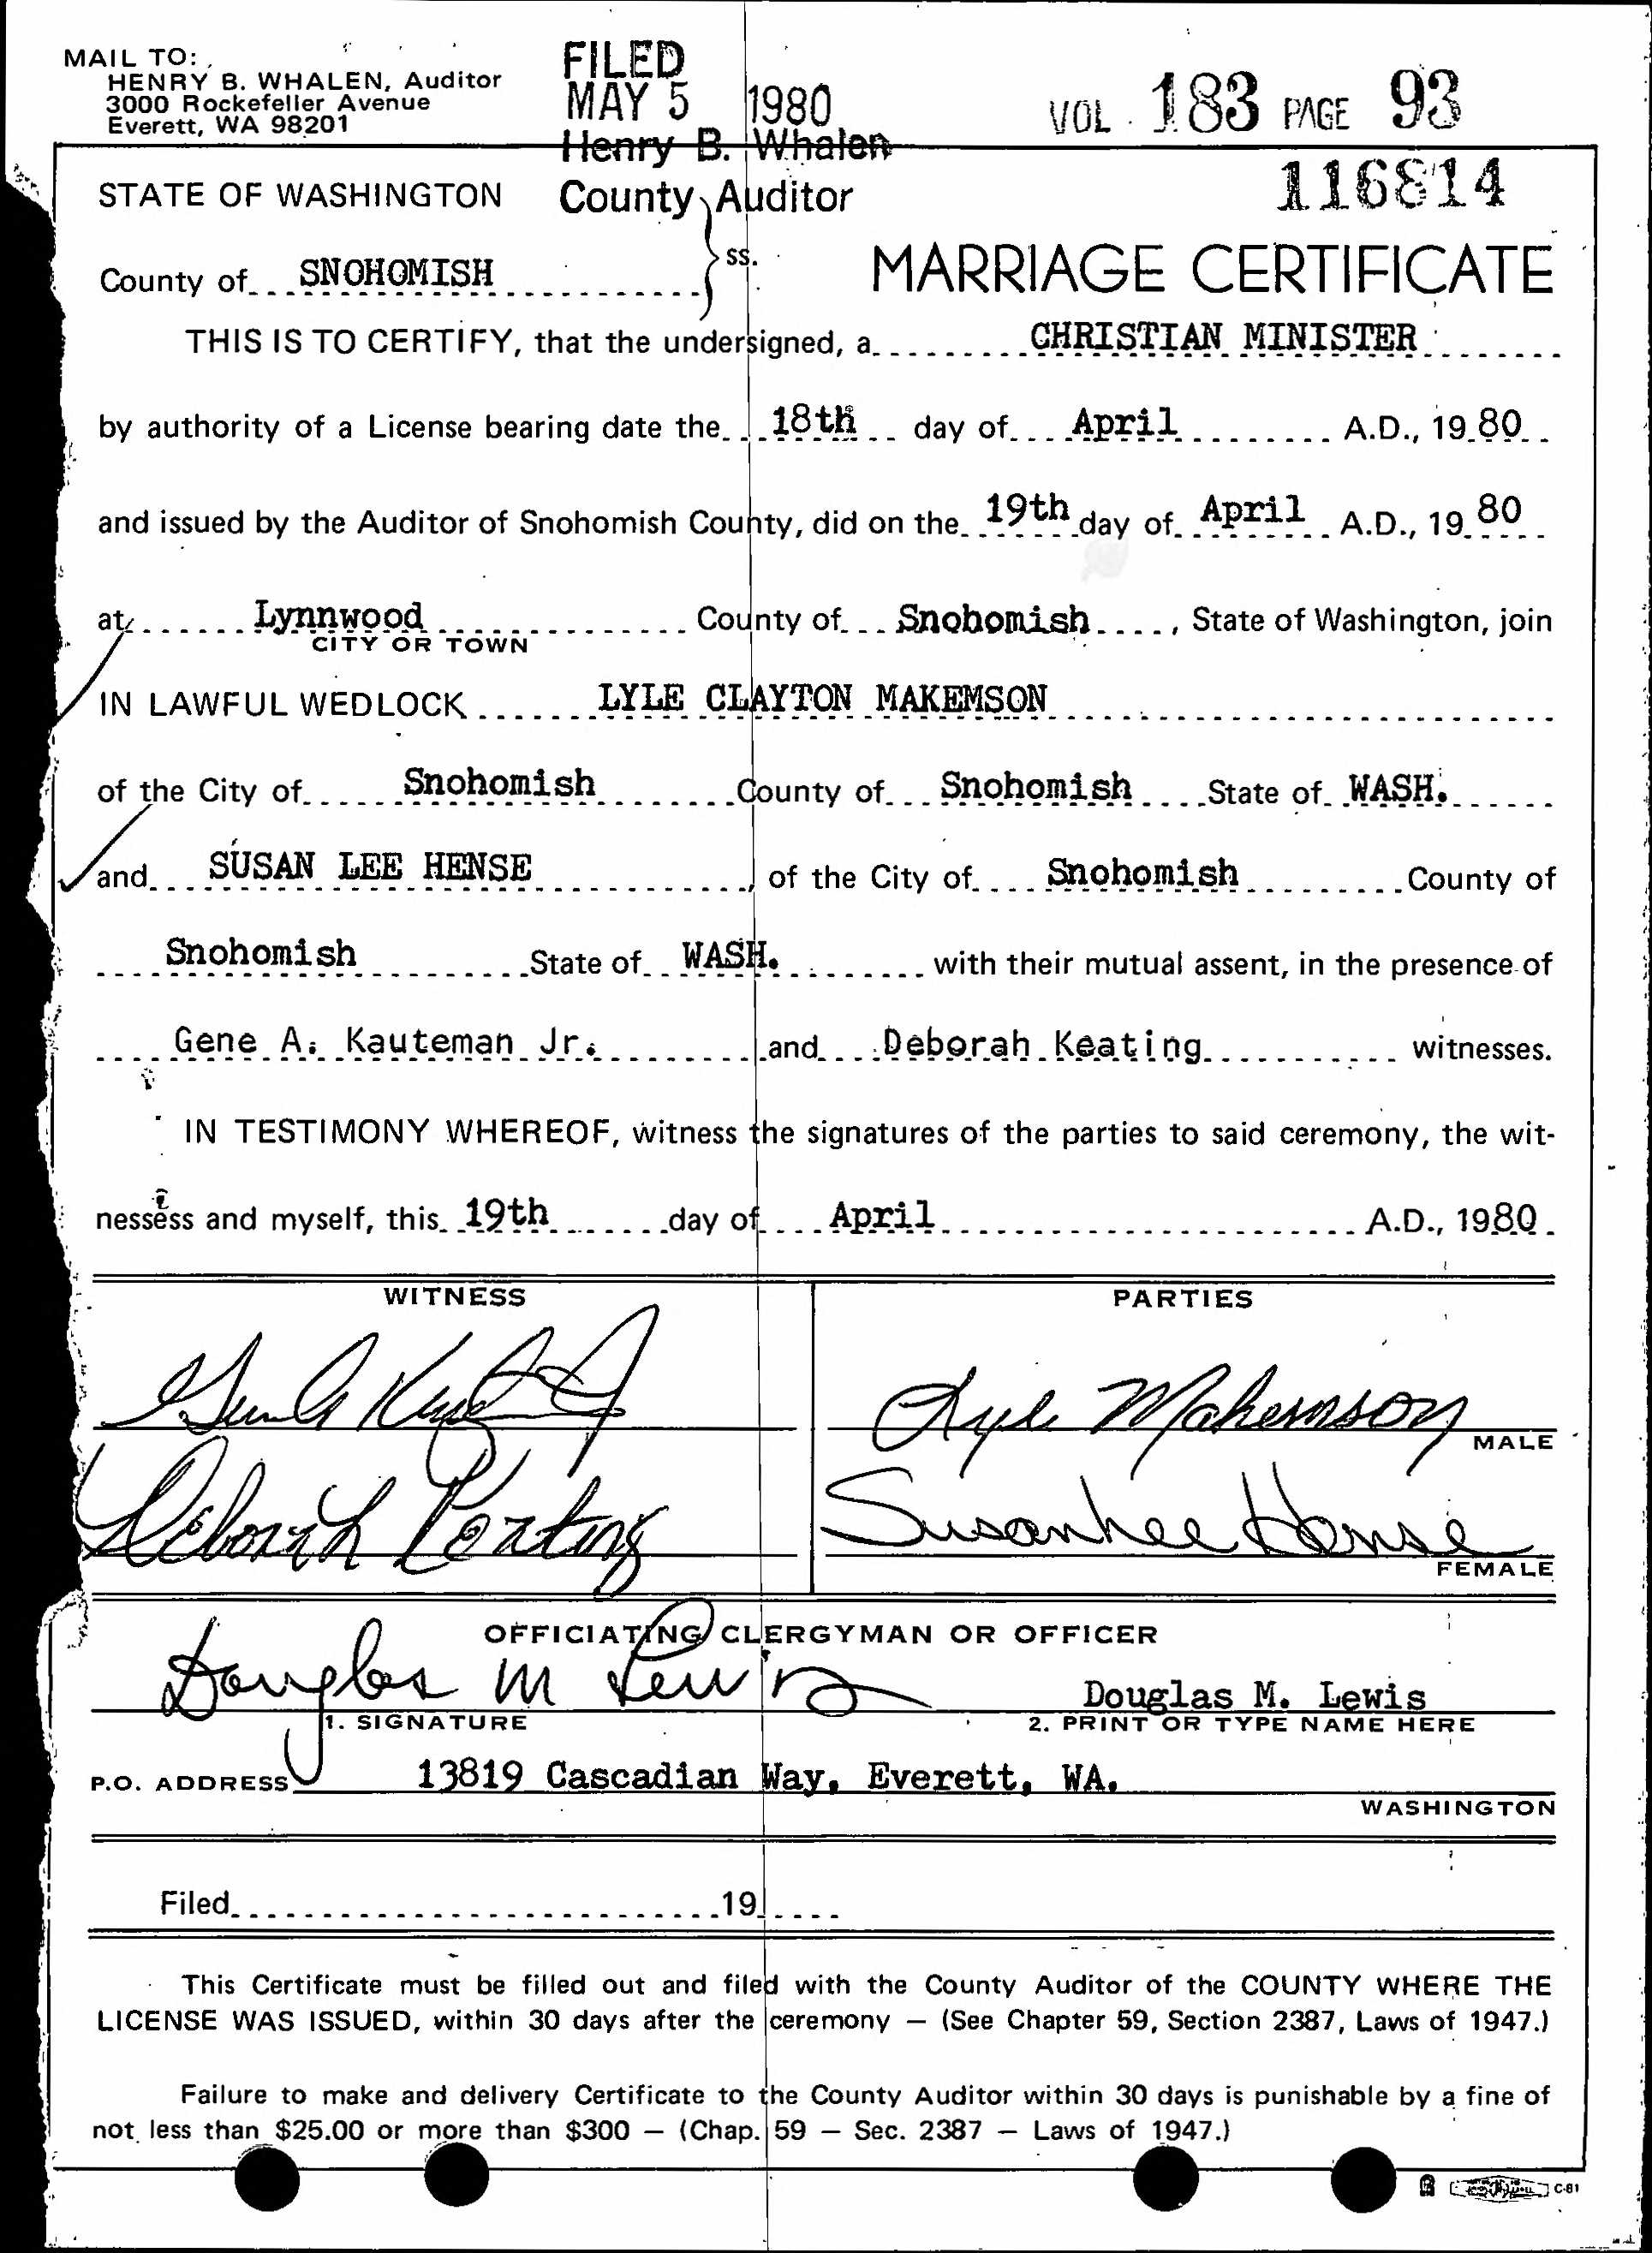 MAIL TO:
HENRY B. WHALEN, Auditor
3000 Rockefeller Avenue
Everett, WA 98201
FILED
MAY 5 1980
Henry B. Whalen
County Auditor
VOL 183 PAGE 93
116814
STATE OF WASHINGTON
County of SNOHOMISH ss.
MARRIAGE CERTIFICATE
THIS IS TO CERTIFY, that the undersigned, a CHRISTIAN MINISTER
by authority of a License bearing date the 18th day of April A.D., 19 80
and issued by the Auditor of Snohomish County, did on the 19th day of April A.D., 19 80
at Lynnwood County of Snohomish, State of Washington, join
CITY OR TOWN
IN LAWFUL WEDLOCK LYLE CLAYTON MAKEMSON
of the City of Snohomish County of Snohomish State of WASH.
and SUSAN LEE HENSE, of the City of Snohomish County of
Snohomish State of WASH. with their mutual assent, in the presence of
Gene A. Kauteman Jr. and Deborah Keating witnesses.
IN TESTIMONY WHEREOF, witness the signatures of the parties to said ceremony, the wit-
nessess and myself, this 19th day of April A.D., 1980.
WITNESS
PARTIES
Lyle Makemson
MALE
Deborah Keating
Susan Lee Hense
FEMALE
OFFICIATING CLERGYMAN OR OFFICER
Douglas M Lewis
Douglas M. Lewis
1. SIGNATURE
2. PRINT OR TYPE NAME HERE
P.O. ADDRESS 13819 Cascadian Way, Everett, WA.
WASHINGTON
Filed 19
This Certificate must be filled out and filed with the County Auditor of the COUNTY WHERE THE
LICENSE WAS ISSUED, within 30 days after the ceremony — (See Chapter 59, Section 2387, Laws of 1947.)
Failure to make and delivery Certificate to the County Auditor within 30 days is punishable by a fine of
not less than $25.00 or more than $300 — (Chap. 59 — Sec. 2387 — Laws of 1947.)
C-81